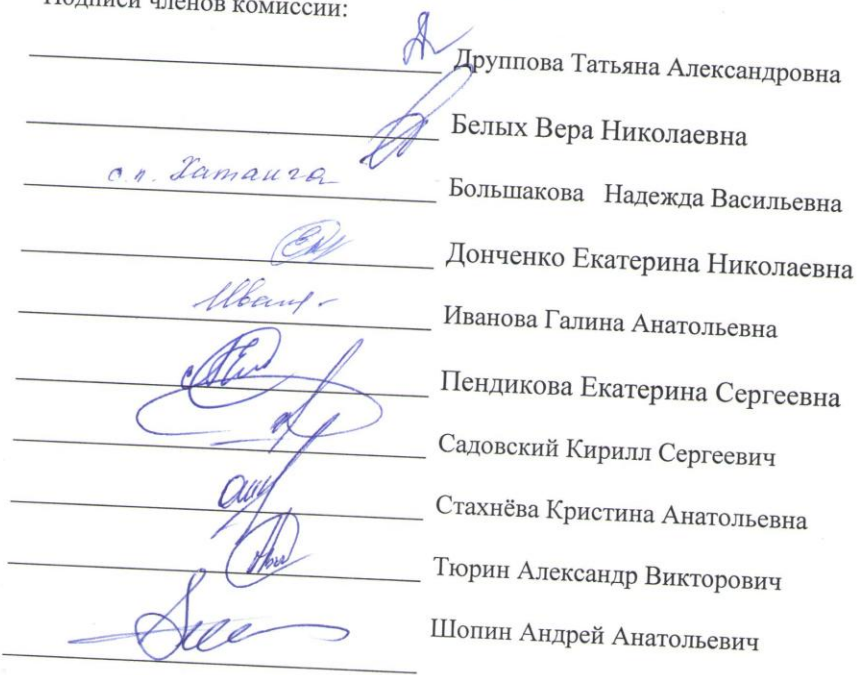 Подписи членов комиссии:
Друппова Татьяна Александровна
Белых Вера Николаевна
с.п. Хатанга Большакова Надежда Васильевна
Донченко Екатерина Николаевна
Иванова Галина Анатольевна
Пендикова Екатерина Сергеевна
Садовский Кирилл Сергеевич
Стахнёва Кристина Анатольевна
Тюрин Александр Викторович
Шопин Андрей Анатольевич